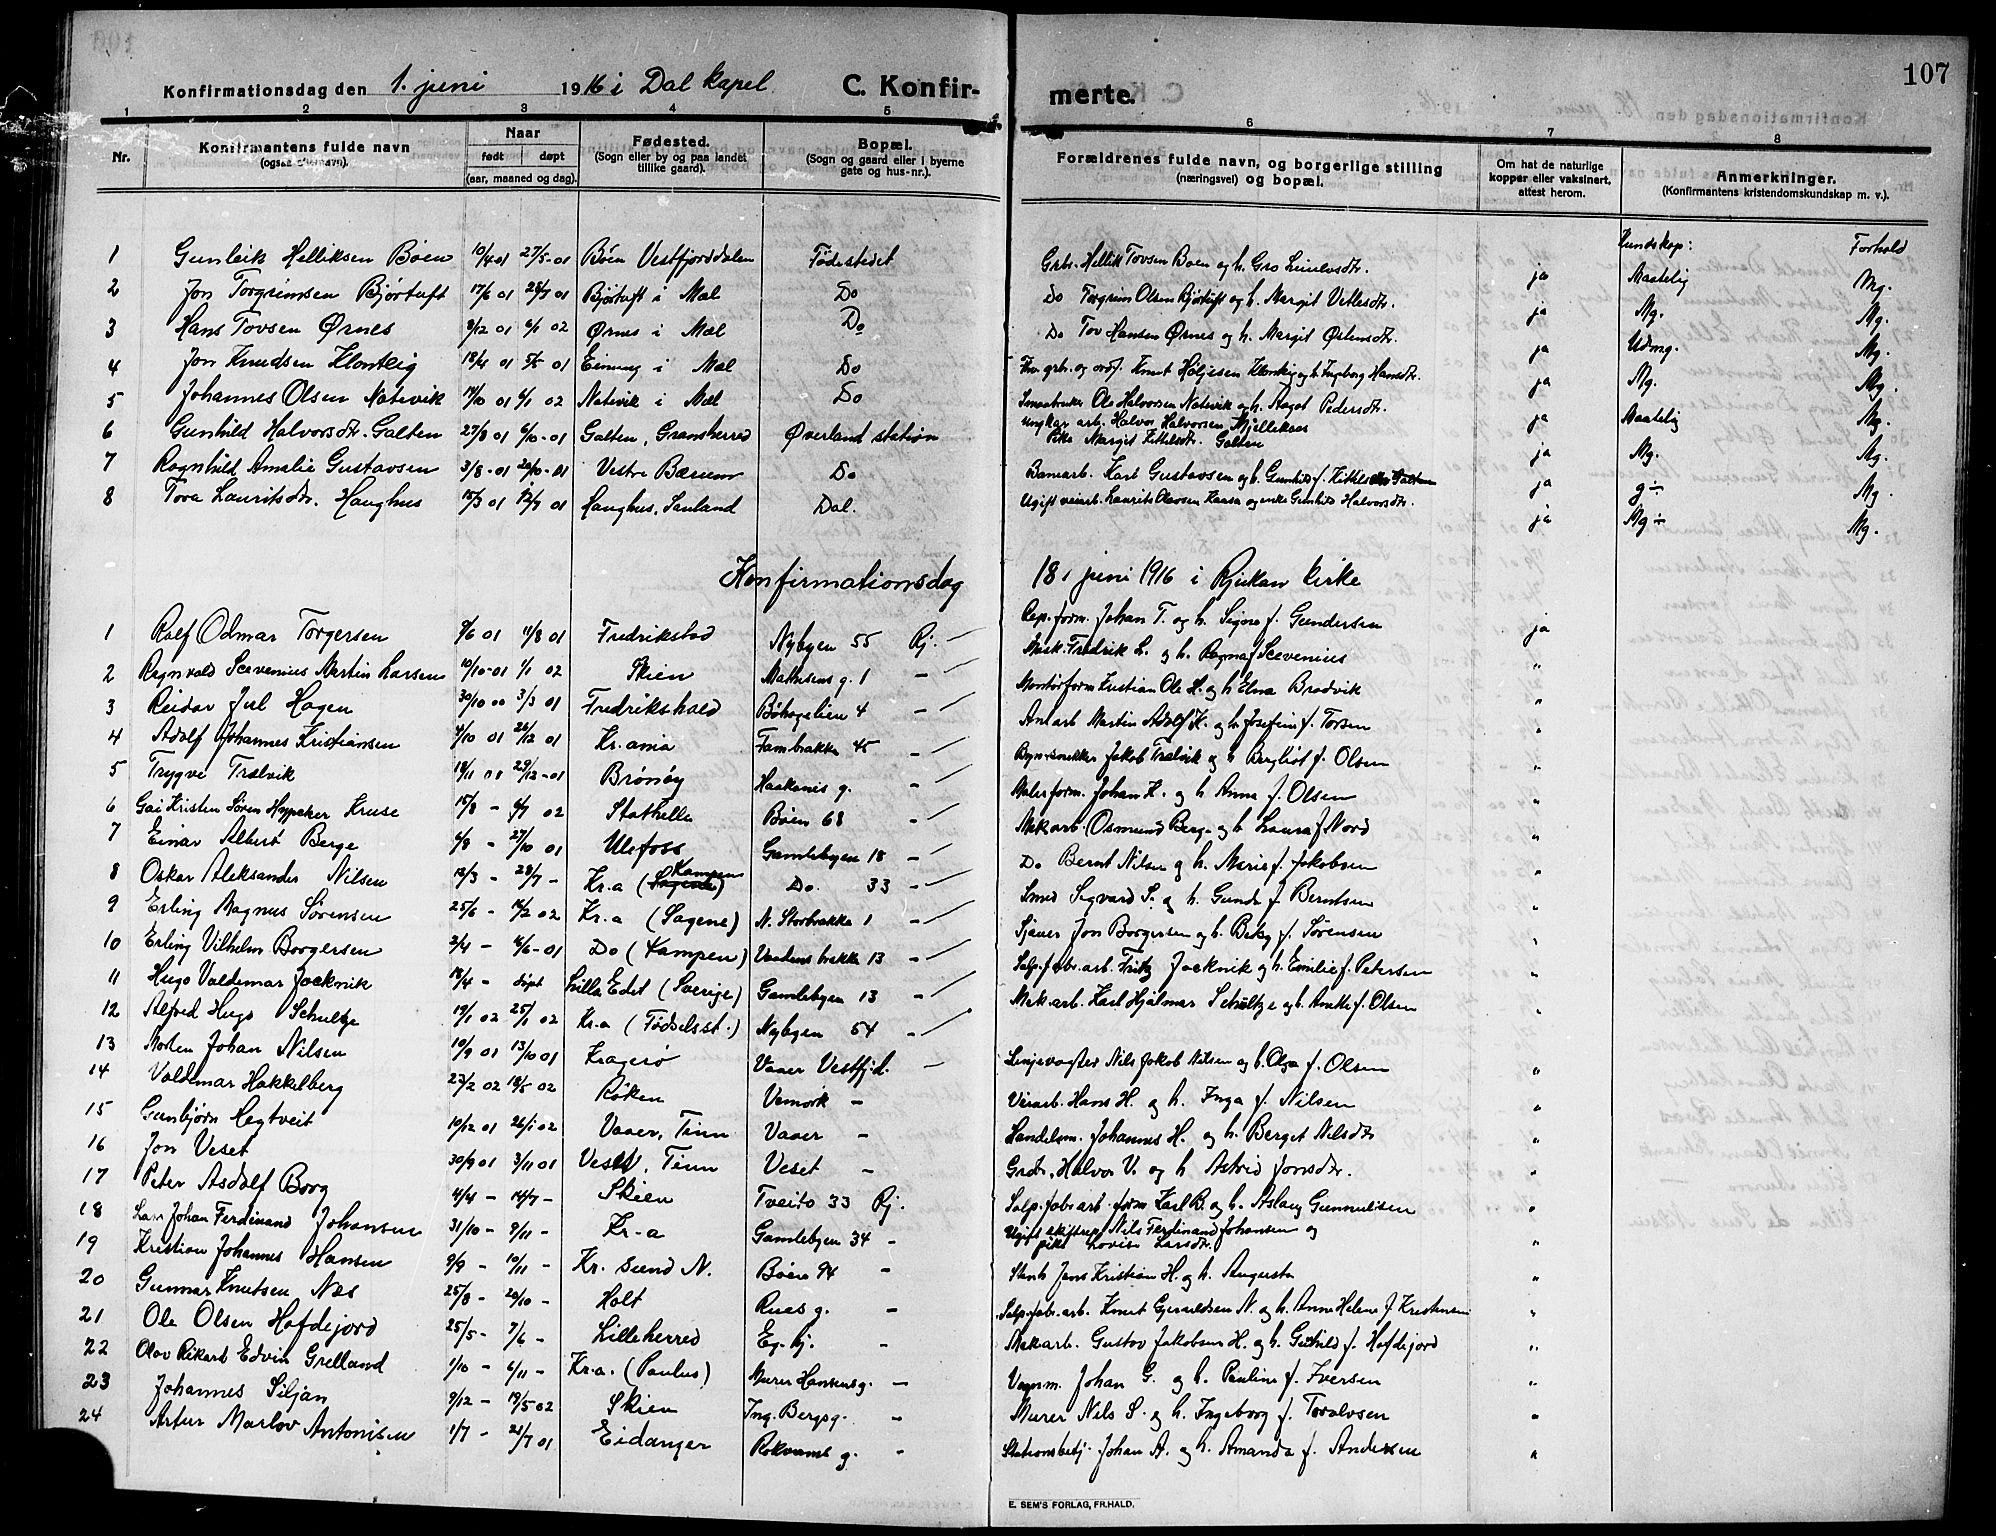 107
Konfirmationsdag den 1. juni 1916 i Dal kapel C. Konfir- merte.
1 2 3 4 5 6 7 8
Nr. Konfirmantens fulde navn (ogsaa efternavn). Naar født døpt (aar, maaned og dag). Fødested. (Sogn eller by og paa landet tillike gaard). Bopæl. (Sogn og gaard eller i byerne gate og hus-nr.). Forældrenes fulde navn, og borgerlige stilling (næringsvei) og bopæl. Om hat de naturlige kopper eller vaksinert, attest herom. Anmerkninger. (Konfirmantens kristendomskundskap m. v.).
Kundskap: Forhold
1 Gunleik Helliksen Bøen 10/4 01 27/5-01 Bøen Vestfjorddalen Fødestedet Grbr. Hellik Tovsen Bøen og h. Gro ja Maatelig Mg.
2 Jon Torgrimsen Bjørtuft 17/6 01 28/7 01 Bjørtuft i Mæl Do Do Torgrim Olsen Bjørtuft og h. Margit Vetlesdtr. ja Mg. Mg.
3 Hans Tovsen Ørnes 8/12 01 6/1 02 Ørnes i Mæl Do Do Tov Hansen Ørnes og h. Margit Østensdtr. ja Udmg. Mg.
4 Jon Knudsen Klonteig 18/4 01 5/5 01 Einung i Mæl Do Knut Høljesen Klonteig og h. Ingeborg Hansdtr. ja Mg. Mg.
5 Johannes Olsen Nativik 14/10 01 6/1 02 Nativik i Mæl Do Smaabruker Ole Halvorsen Nativik og h. Aagot Pedersdtr. ja Maatelig Mg.
6 Gunhild Halvorsdtr. Galten 27/8 01 6/10-01 Galten, Gransherred Øverland station Ungkar arb. Halvor Halvorsen Mjellekaas
Pike Margit Kittelsdtr. Galten ja Mg. Mg.
7 Ragnhild Amalie Gustavsen 3/8-01 20/10-01 Vestre Bærum Do Banearb. Karl Gustavsen og h. Gunhild f. Kittelsdtr Galten ja g÷ Mg.
8 Tora Lauritsdtr. Haughus 15/3 01 12/7 01 Haughus, Sauland Dal. Ugift veiarb. Laurits Olavsen Kaasa og enke Gunhild Halvorsdtr. ja Mg÷ Mg.
Konfirmationsdag 18. juni 1916 i Rjukan kirke
1 Rolf Odmar Torgersen 9/6 01 11/8 01 Fredrikstad Nybyen 55 Rj. Rep.form. Johan T. og h. Signe f. Gundersen ja
2 Ragnvald Scevenius Martin Larsen 10/10-01 1/1 02 Skien Mathisens g. 1 - Mask. Fredrik L. og h. Ragna f Scevenius "
3 Reidar Jul Hagen 30/10 00 3/3 01 Fredrikshald Bøhagelien 4 - Montørform Kristian Ole H. og h Elna Brødvik "
4 Adolf Johannes Kristiansen 4/10 01 26/12 01 Kr.ania Fambrakka 45 - Anl arb Martin Adolf K. og h. Josefine f. Torsen "
5 Trygve Trælvik 18/11 01 29/12-01 Brønøy Haakanes g. - Bygn.snekker Jakob Trælvik og h Bergliot f. Olsen "
6 Gai Kristen Søren Kruse 15/8 - 6/7 02 Stathelle Bøen 68 - Malerform. Johan K. og h Anna f. Olsen "
7 Einar Albert Berge 4/8 - 27/10 01 Ulefoss Gamlebyen 18 - Mek arb. Osmund Berge og h Laura f Nord "
8 Oskar Aleksander Nilsen 12/3 - 28/7 - Kr.a (Sagene) Kampen Do. 33 - Do Bernt Nilsen og h. Marie f. Jakobsen "
9 Erling Magnus Sørensen 25/6 - 16/2 02 Kr.a (Sagene) N. Storbrakke 1 - Smed Sigvard S. og h. Gunda f Berntsen "
10 Erling Vilhelm Borgersen 2/4 - 16/6-01 Do (Kampen) Vaadens brakke 13 - Sjauer Jon Borgersen og h. f. Sørensen "
11 Hugo Valdemar Jacknik 18/4 - døpt Lilla Edet (Sverige) Gamlebyen 13 - Salp.fabr.arb. Fritz Jacknik og h. Emilie f. Petersen "
12 Alfred Hugo Schultze 19/1 02 25/1 02 Kr.a (Fødselsst.) Nybyen 54 - Mek arb. Karl Hjalmar Schultze og h. Anette f. Olsen "
13 Morten Johan Nilsen 10/9 01 13/10 01 Kragerø Vaaer Vestfjd. - Linjevogter Nils Jakob Nilsen og h. Olga f. Olsen "
14 Valdemar Hakkelberg 27/2 02 18/5 02 Røken Vemork - Veiarb. Hans H. og h. Inga f. Nilsen "
15 Gunbjørn Hegtveit 10/12 01 26/1 02 Vaaer, Tinn Vaaer - Handelsm. Johannes H. og h. Berget Nilsdtr "
16 Jon Veset 30/9 01 3/11 01 Veset, Tinn Veset - Grdbr. Halvor V. og h Astrid Jonsdtr. "
17 Peter Asdolf Borg 4/4 - 14/7 - Skien Tveito 33 Rj. Salp.fabr arb. form Karl B. og h. Aslaug Gunnulfsen "
18 Lars Johan Ferdinand Johansen 31/10 - 9/11 - Kr-a Gamlebyen 34 - Ugift Nils Ferdinand Johansen og
pike Lovise Larsdtr. "
19 Kristian Johannes Hansen 9/9 - 10/11 - Kr. sund N. Bøen 94 - Jens Kristian H. og h. Augusta "
20 Gunnar Knutsen Næs 25/8 - 20/10 - Holt Ruas g. - Salp.fabr.arb. Knut Gjeruldsen N. og h. Anne Helene f Kristensen "
21 Ole Olsen Hofdejord 25/5 - 7/6 - Lilleherred Eg. hj. - Mek arb. Gustav Jakobsen H. og h. Gunhild f. Hofdejord "
22 Olav Rikard Edvin Grelland 1/10 - 6/11 - Kr.a. (Paulus) Murer Hansens g. - Vognm. Johan G. og h. Pauline f. Iversen "
23 Johannes Siljan 9/12 - 19/5 02 Skien Ing. Bergs g. - Murer Nils S. og h. Ingeborg f. Toralvsen "
24 Artur Marlov Antonisen 1/7 - 21/7 01 Eidanger Rokvams g. - Stationsbetj. Johan A. og h. Amanda f. Andersen "
E. SEM'S FORLAG, FR.HALD.